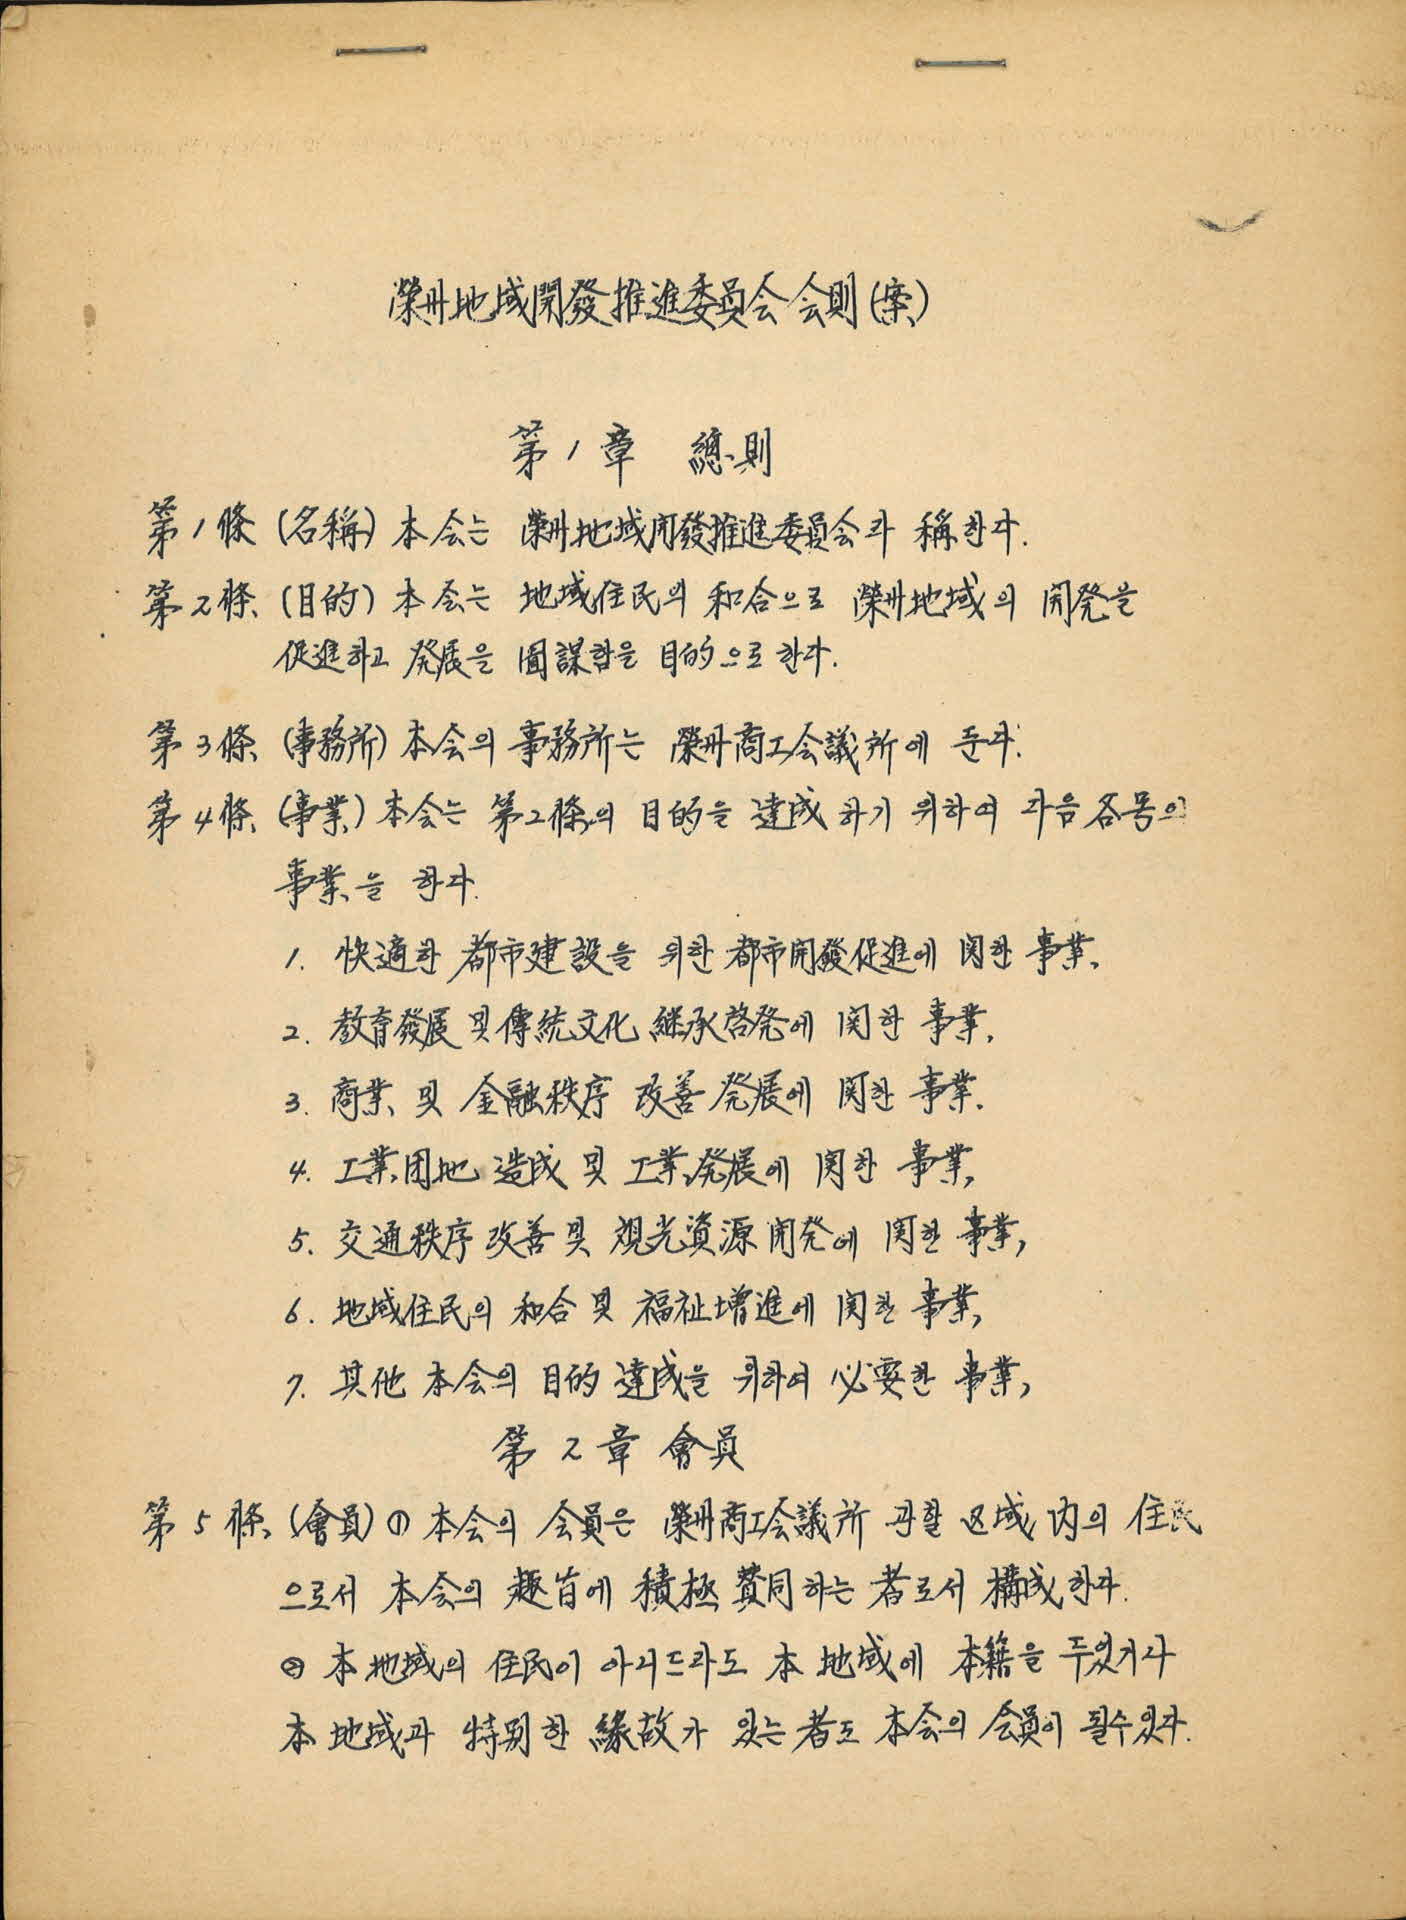 榮州地域開發推進委員会会則(案)
第1章 總則
第1條 (名稱) 本会는 榮州地域開發推進委員会라 稱한다.
第2條 (目的) 本会는 地域住民의 和合으로 榮州地域의 開発을
促進하고 発展을 圖謀함을 目的으로 한다.
第3條 (事務所) 本会의 事務所는 榮州商工会議所에 둔다.
第4條 (事業) 本会는 第2條의 目的을 達成하기 위하여 다음 各号의
事業을 한다.
1. 快適한 都市建設을 위한 都市開發促進에 関한 事業,
2. 教育發展 및 傳統文化 継承啓発에 関한 事業,
3. 商業 및 金融秩序 改善 発展에 関한 事業.
4. 工業团地 造成 및 工業発展에 関한 事業,
5. 交通秩序 改善 및 観光資源 開発에 関한 事業,
6. 地域住民의 和合 및 福祉增進에 関한 事業,
7. 其他 本会의 目的 達成을 위하여 必要한 事業,
第2章 會員
第5條 (會員) ① 本会의 会員은 榮州商工会議所 관할 区域 内의 住民
으로서 本会의 趣旨에 積極 賛同하는 者로서 構成한다.
② 本地域의 住民이 아니드라도 本 地域에 本籍을 두었거나
本 地域과 特別한 緣故가 있는 者도 本会의 会員이 될수있다.